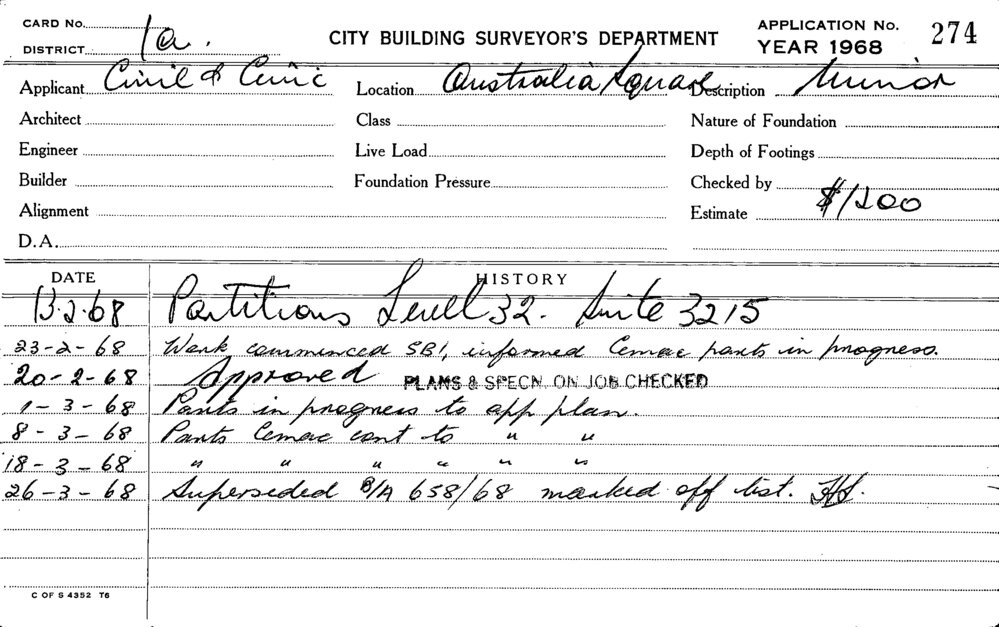 CARD No.
DISTRICT 1a.
CITY BUILDING SURVEYOR'S DEPARTMENT
APPLICATION No. 274
YEAR 1968
Applicant Civil & Civic Location Australia Square Description Minor
Architect Class Nature of Foundation
Engineer Live Load Depth of Footings
Builder Foundation Pressure Checked by
Alignment Estimate $1200
D.A.
DATE HISTORY
13.2.68 Partitions Level 32. Suite 3215
23-2-68 Work commenced SB1, informed Cemac parts in progress.
20-2-68 Approved PLANS & SPECN. ON JOB CHECKED
1-3-68 Parts in progress to app plan.
8-3-68 Parts Cemac cont to " "
18-3-68 " " " " " "
26-3-68 Superseded B/A 658/68 marked off list.
C OF S 4352 T6